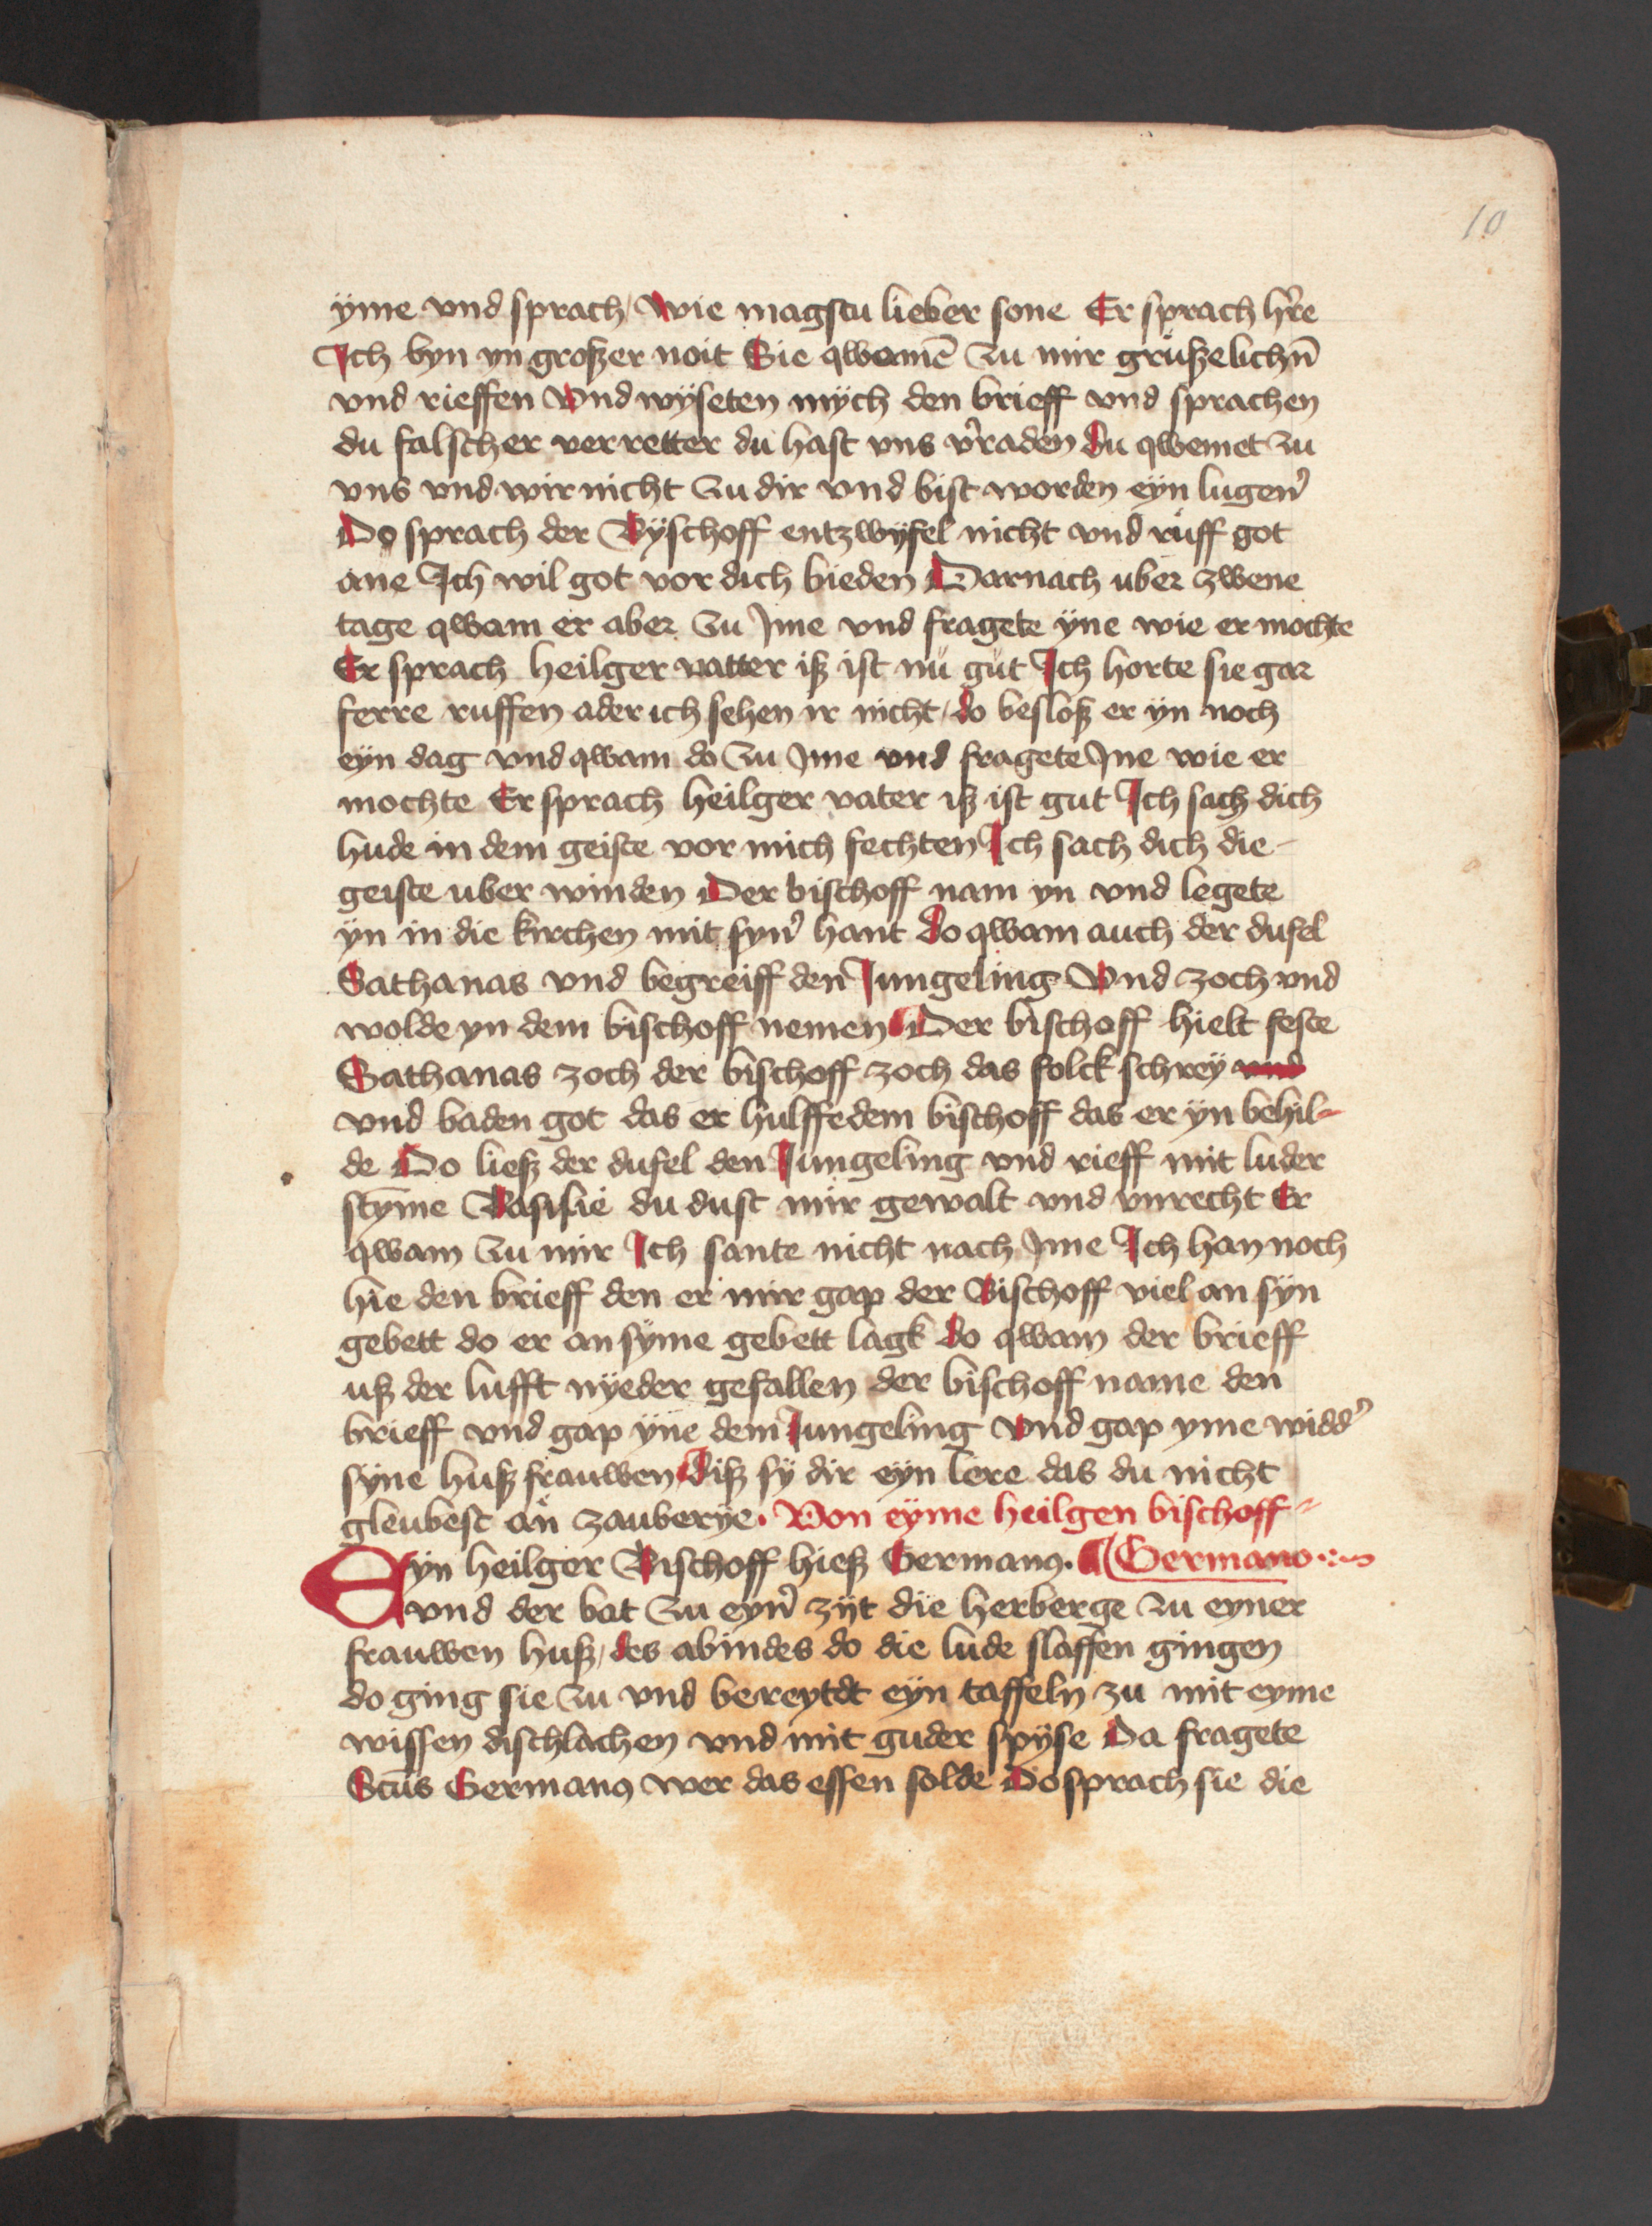 10
ÿme vnd sprach / Wie magstu lieber sone Er sprach hr̃e
Ich byn yn großer noit Sie qwamē zu mir grußelichn̄
vnd rieffen Vnd wÿseten mÿch den brieff vnd sprachen
du falscher verretter du hast vns v̾raden du qwemet zu
vns vnd wir nicht zu dir vnd bist worden eÿn lugen̾
Do sprach der Bÿschoff entzwÿfel nicht vnd růff got
ane Ich wil got vor dich bieden Darnach uber zwene
tage qwam er aber zu Jme vnd fragete ÿne wie er mochte
Er sprach heilger vatter iß ist nů gůt Ich horte sie gar
ferre ruffen ader ich sehen ir nicht / do besloß er ÿn noch
eÿn dag vnd qwam do zu Jme vnd fragete Jne wie er
mochte Er sprach heilger vater iß ist gut Ich sach dich
hude in dem geiste vor mich fechten Ich sach dich die
geiste uber winden Der bischoff nam yn vnd legete
ÿn in die kirchen mit syn̾ hant do qwam auch der dufel
Sathanas vnd begreiff den Jungeling Vnd zoch vnd
wolde yn dem bischoff nemen Der bischoff hielt feste
Sathanas zoch der bischoff zoch das folck schreÿ vnd
vnd baden got das er hulffe dem bischoff das er ÿn behil-
de Do ließ der dufel den Jungeling vnd rieff mit luder
stȳme Basilie du dust mir gewalt vnd vnrecht Er
qwam zu mir Ich sante nicht nach Jme Ich han noch
hie den brieff den er mir gap der Bischoff viel an sÿn
gebett do er an sÿme gebett lagk do qwam der brieff
uß der lufft nÿeder gefallen der bischoff name den
brieff vnd gap ÿne dem Jungeling Vnd gap yme widd̾
sÿne huß frauwen Diß sÿ dir eÿn lere das du nicht
gleubest an zauberÿe · Von eÿme heilgen bischoff
Eyn heilger Bischoff hieß Germanꝯ. Germano
vnd der bat zu eyn̾ zÿt die herberge zu eyner
frauwen huß / des abindes do die lude slaffen gingen
do ging sie zu vnd bereytdt eÿn taffeln zu mit eyme
wissen dischlachen vnd mit guder spÿse Da fragete
Sctūs Germanꝯ wer das essen solde Do sprach sie die